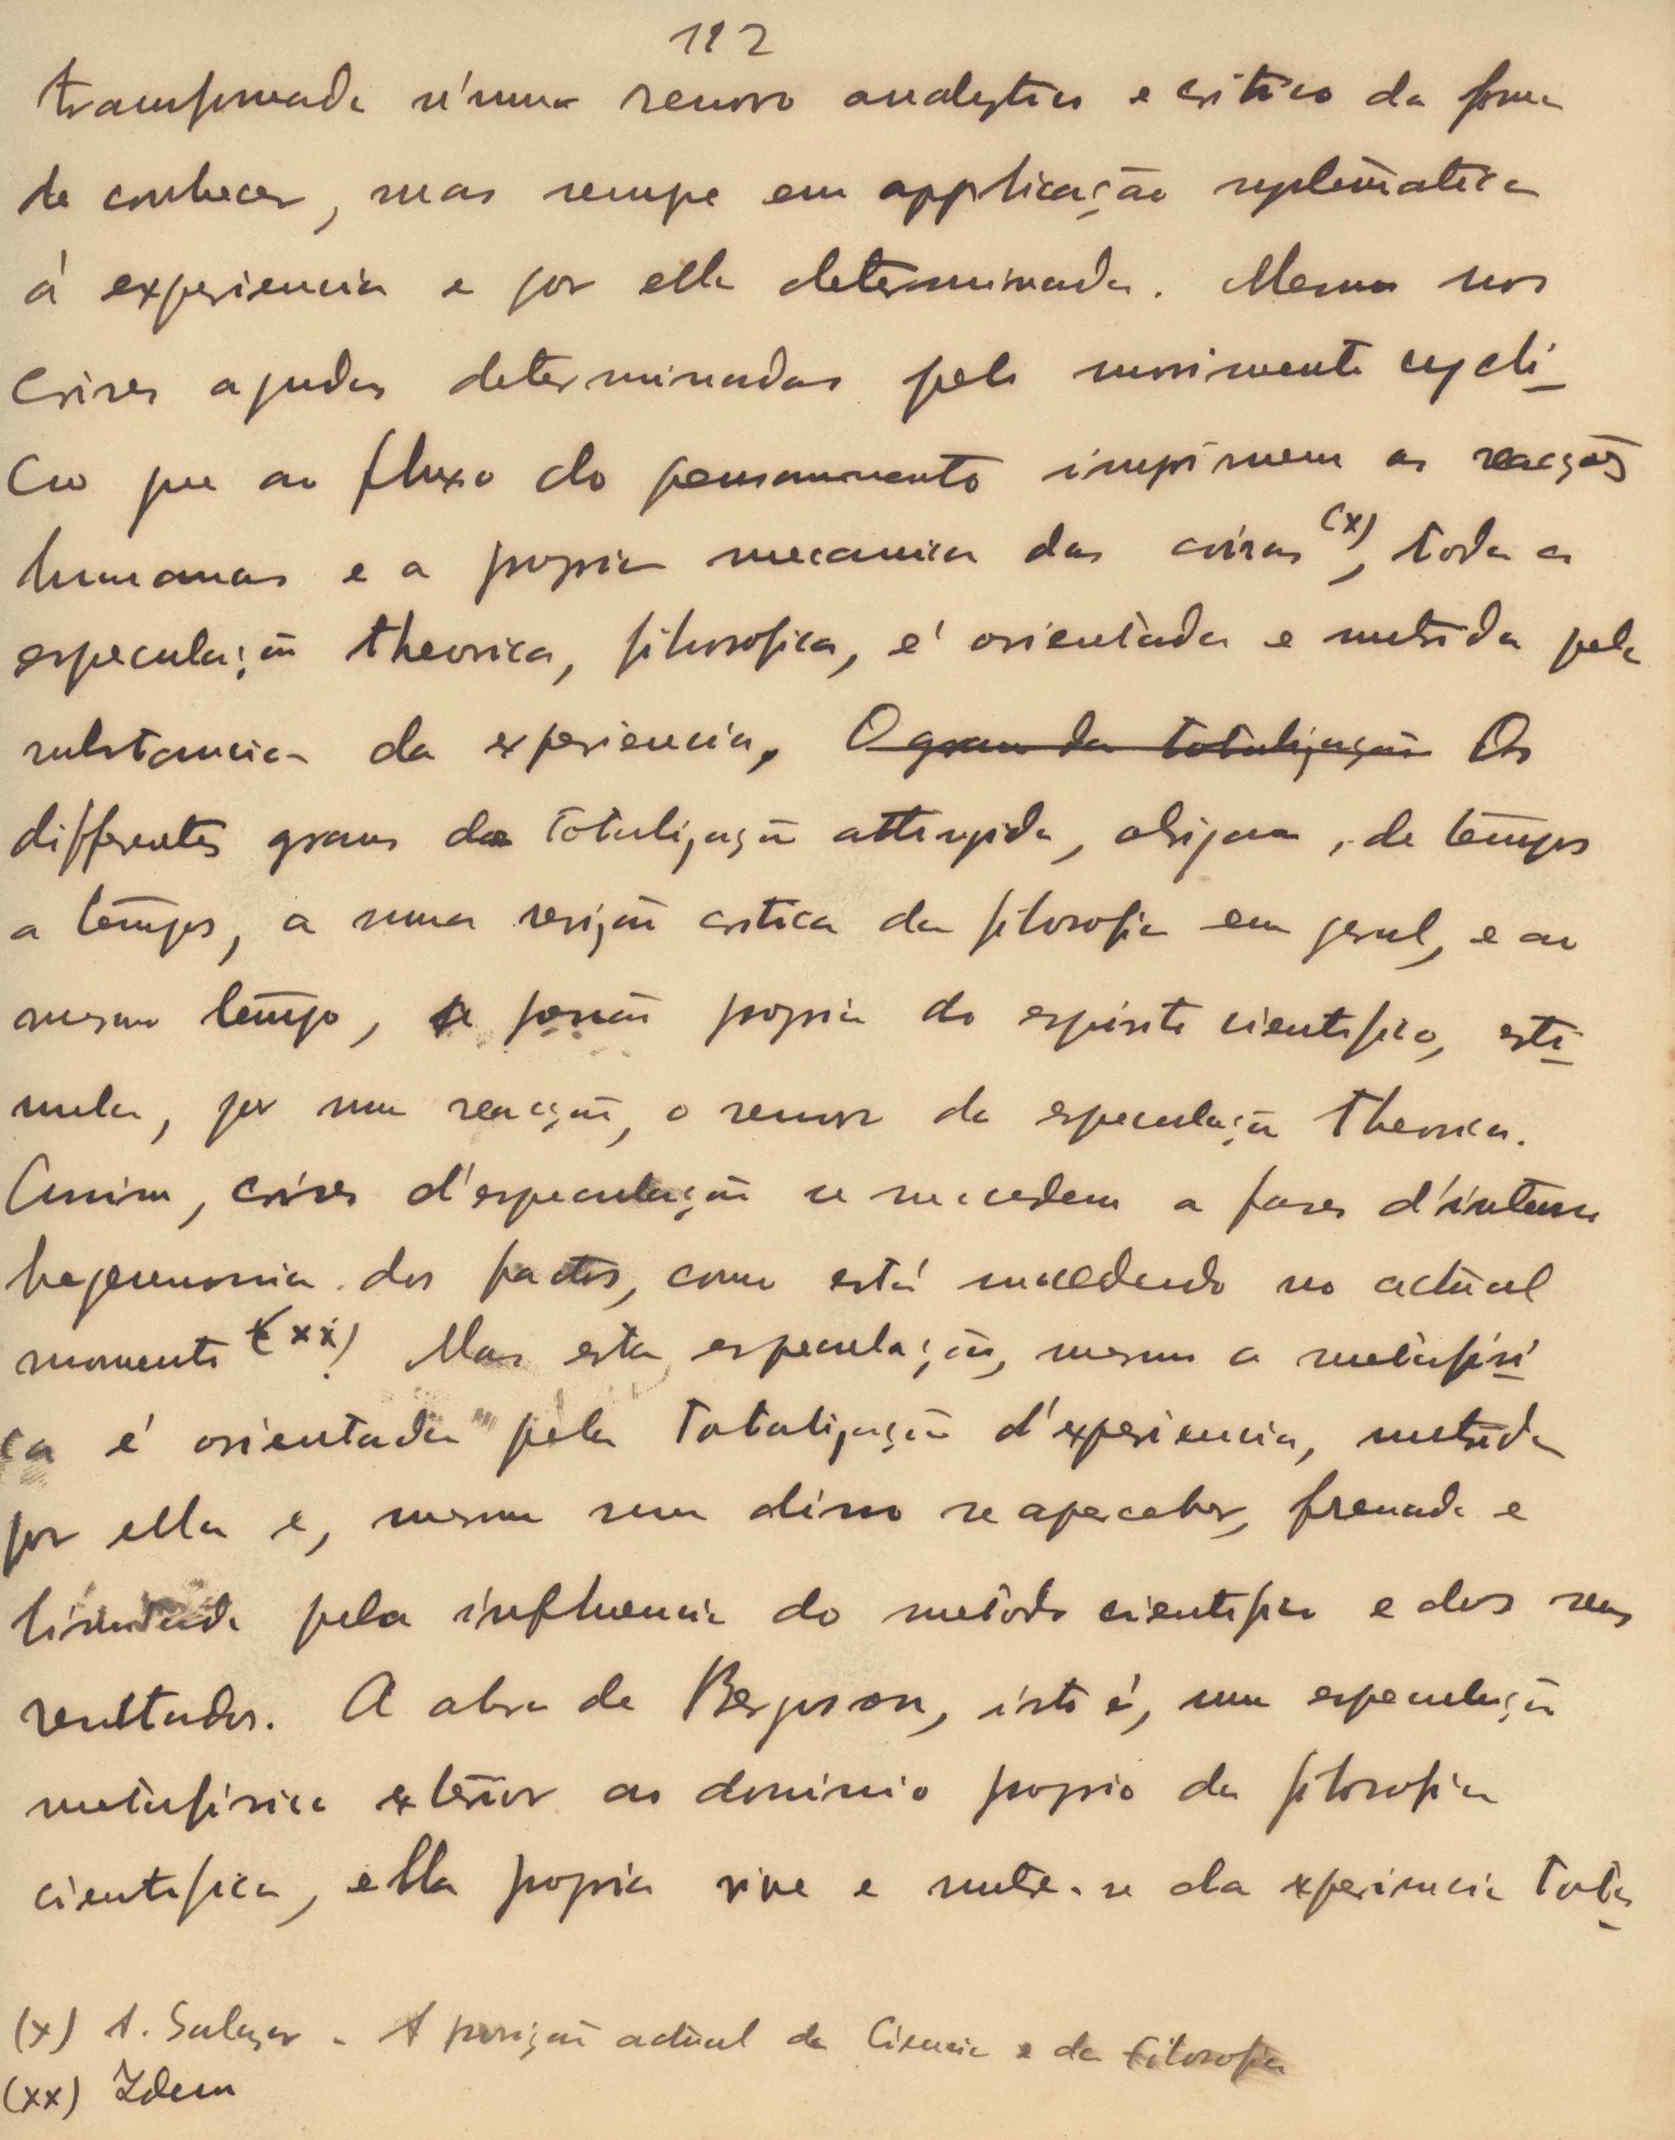 112
transformada n'uma renovo analytico e critico da forma
de conhecer, mas sempre em applicação systematica
á experiencia e por ella determinada. Mesmo nas
crises agudas determinadas pelo movimento cycli-
co que ao fluxo do pensamento imprimem as reacções
humanas e a propria mecanica das coisas (x), toda a
especulação theorica, filosofica, é orientada e nutrida pela
substancia da experiencia. O grau da totalização Os
differentes graus da totalização attingida, obrigam, de tempos
a tempos, a uma revisão critica da filosofia em geral, e ao
mesmo tempo, a propria do espirito cientifico, esti-
mula, por uma reacção, o renovo da especulação theorica.
Assim, crises d'especulação se succedem a fases d'intensa
hegemonia dos factos, como está succedendo no actual
momento (xx). Mas esta especulação, mesmo a metafisi-
ca é orientada pela totalização d'experiencia, nutrida
por ella e, mesmo sem disso se aperceber, frenada e
limitada pela influencia do metodo cientifico e dos seus
resultados. A obra de Bergson, isto é, uma especulação
metafisica exterior ao dominio proprio da filosofia
cientifica, ella propria vive e nutre-se da experiencia tota-
(x) A. Salazar - A posição actual da Ciencia e da Filosofia
(xx) Idem